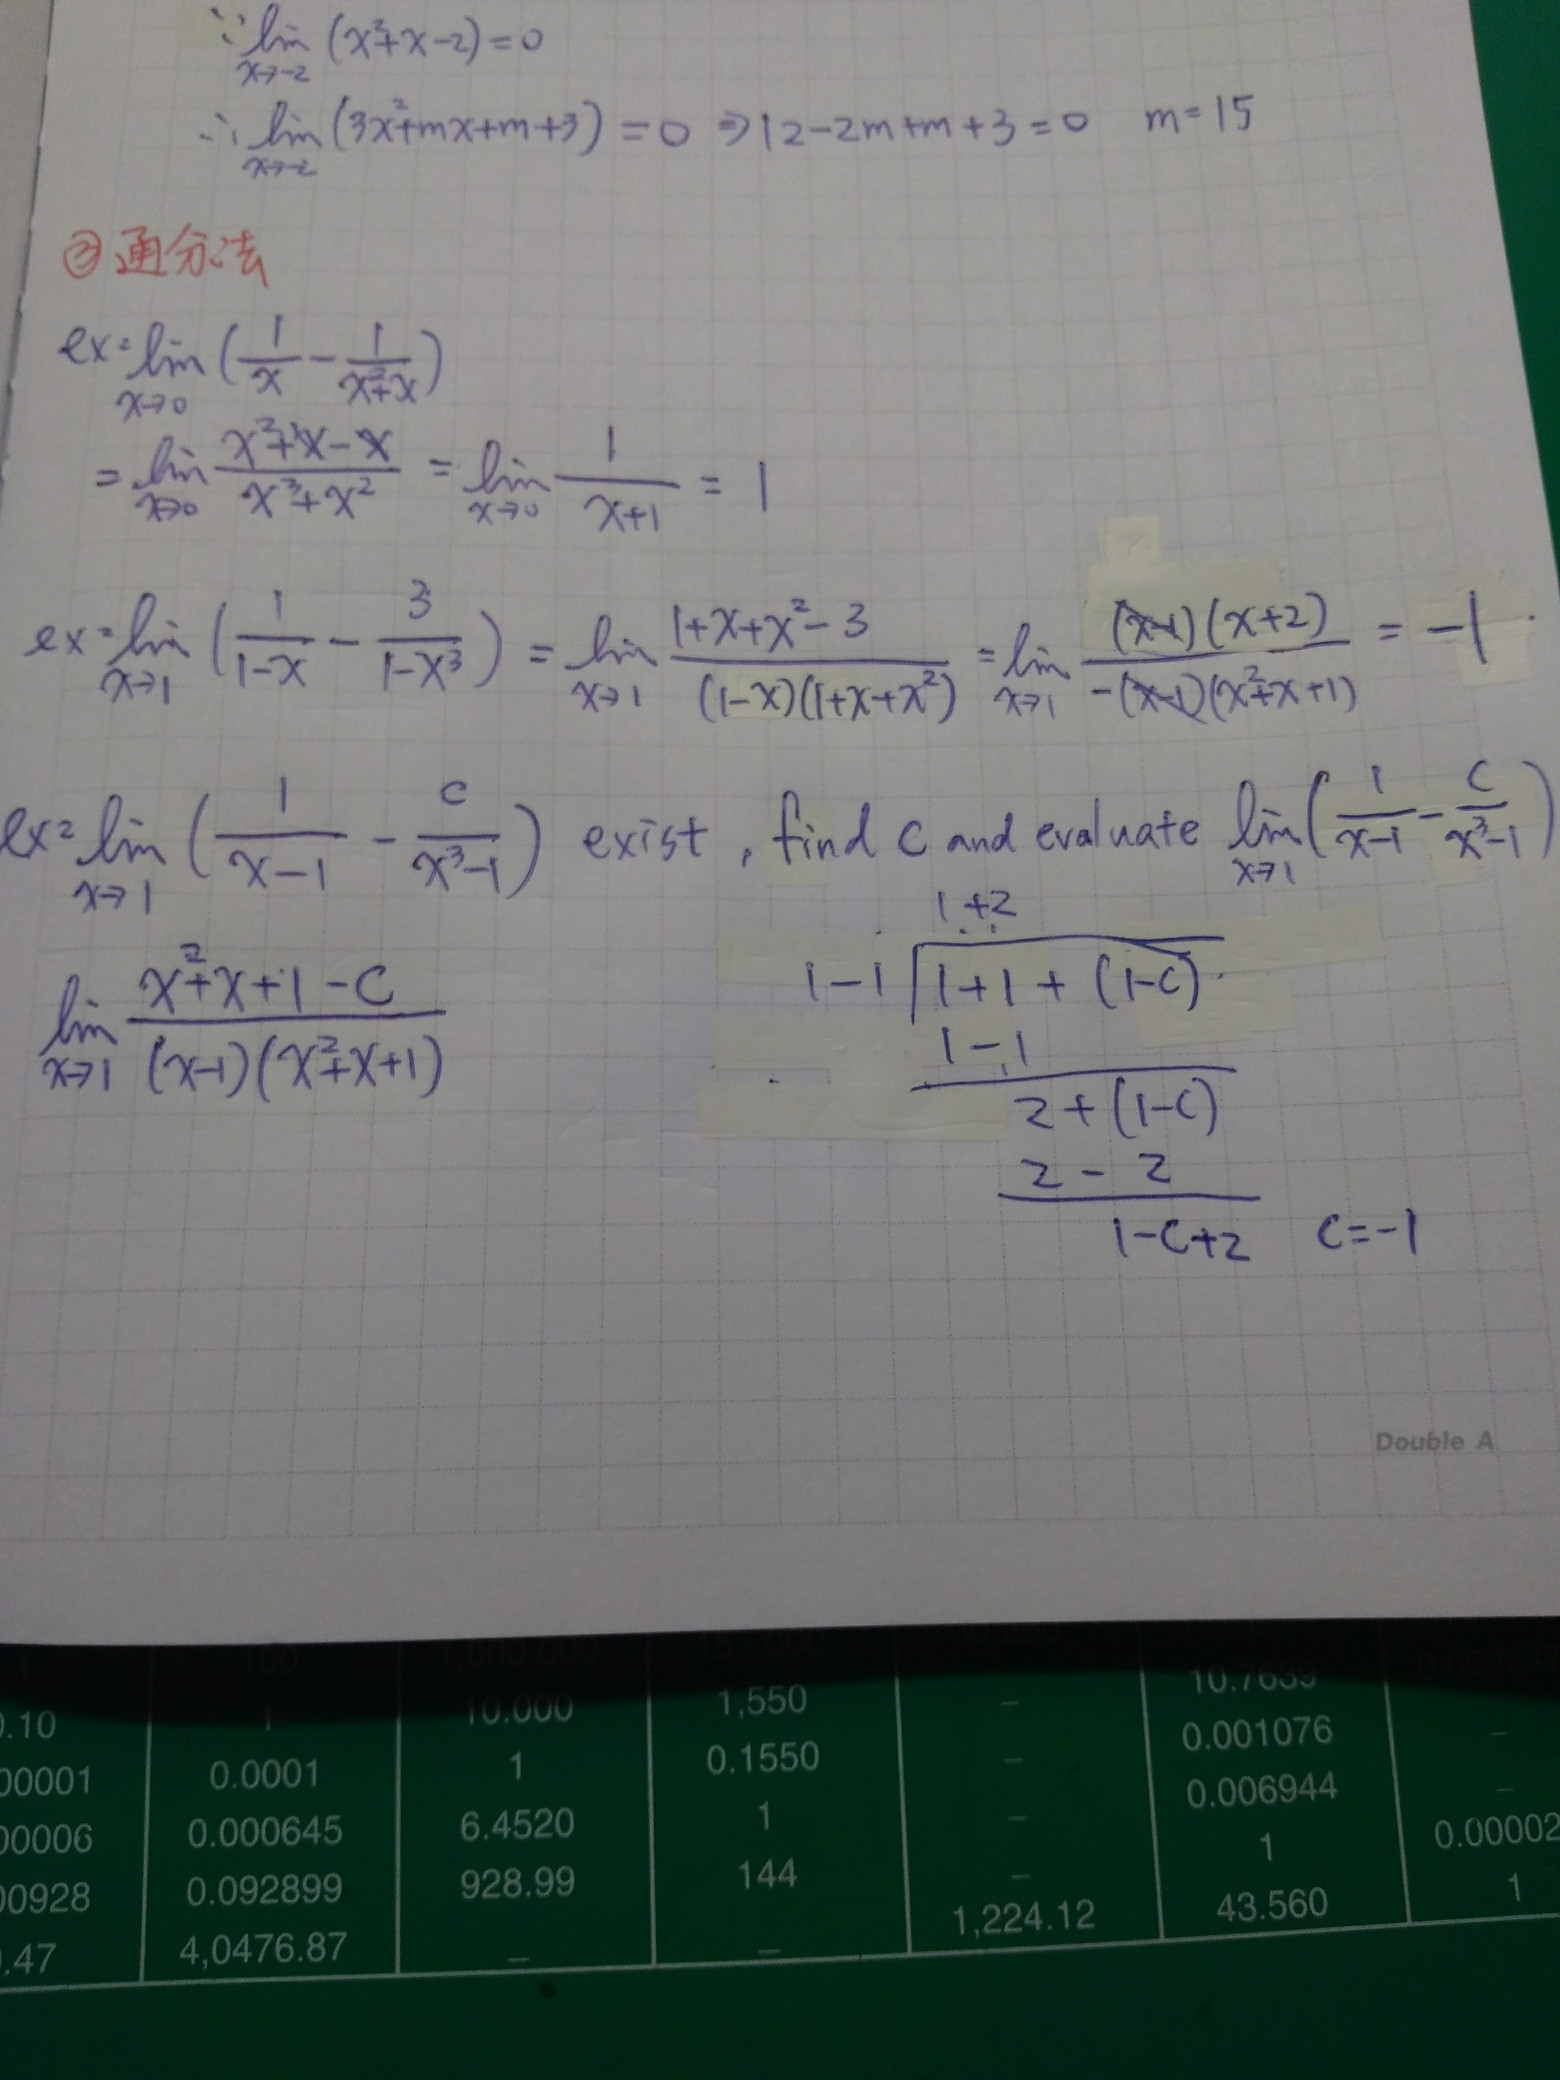 ∵ lim (x²+x-2)=0
x→-2
∴ lim (3x²+mx+m+3) = 0 ⇒ 12-2m+m+3=0 m=15
x→-2
③通分法
ex: lim (1/x - 1/(x²+x))
x→0
= lim (x²+x-x)/(x³+x²) = lim 1/(x+1) = 1
x→0 x→0
ex: lim (1/(1-x) - 3/(1-x³)) = lim (1+x+x²-3)/((1-x)(1+x+x²)) = lim (x-1)(x+2)/(-(x-1)(x²+x+1)) = -1
x→1 x→1 x→1
ex: lim (1/(x-1) - c/(x³-1)) exist, find c and evaluate lim (1/(x-1) - c/(x³-1))
x→1 x→1
lim (x²+x+1-c)/((x-1)(x²+x+1))
x→1
1+2
1-1 1+1+(1-c)
1-1
2+(1-c)
2-2
1-c+2 c=-1
Double A
.10 1 10.000 1,550 – 10.7639
00001 0.0001 1 0.1550 – 0.001076 –
00006 0.000645 6.4520 1 – 0.006944 –
00928 0.092899 928.99 144 – 1 0.00002
.47 4,0476.87 – – 1,224.12 43.560 1